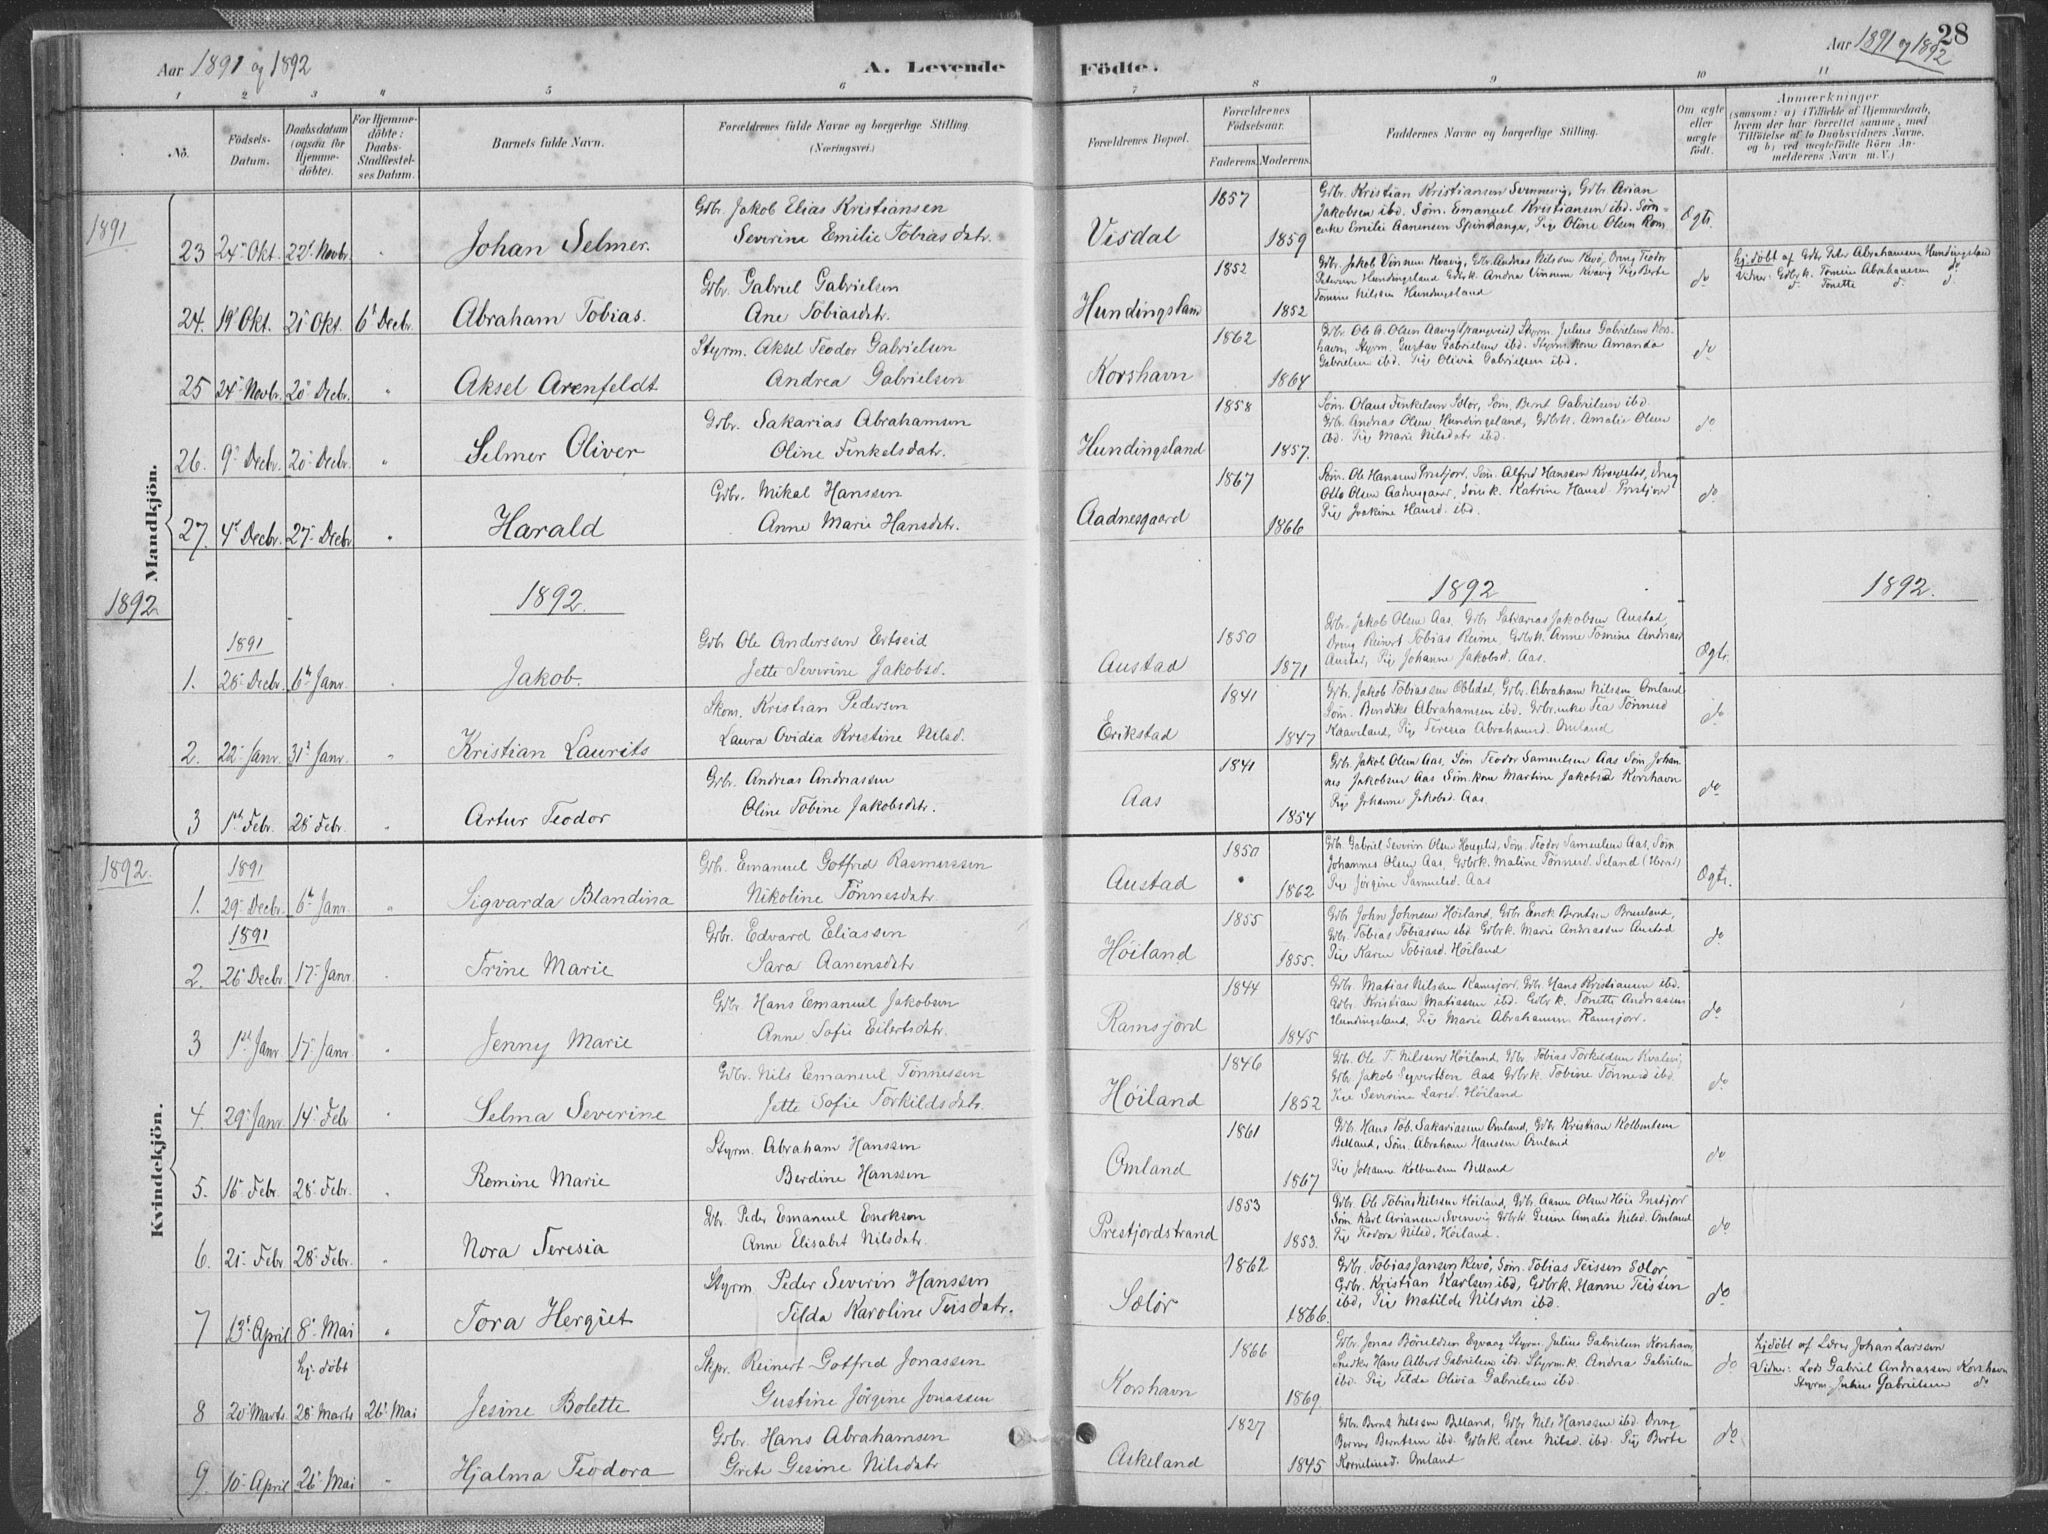 Aar 1891 og 1892
A. Levende
Födte.
Aar 1891 og 1892
28
1 2 3 4 5 6 7 8 9 10 11
No.
Födsels-Datum.
Daabsdatum (ogsaa for Hjemmedöbte).
For Hjemmedöbte: Daabs-Stadfæstelses Datum.
Barnets fulde Navn.
Forældrenes fulde Navne og borgerlige Stilling. (Næringsvei.)
Forældrenes Bopæl.
Forældrenes Födselsaar.
Faderens. Moderens.
Faddernes Navne og borgerlige Stilling.
Om ægte eller uægte födt.
Anmærkninger
(saasom: a) i Tilfælde af Hjemmedaab, hvem der har forrettet samme, med Tilföielse af to Daabsvidners Navne, og b) ved uægtefödte Börn Anmelderens Navn m. V.)
1891
Mandkjön.
23 24' Okt. 22' Novbr. " Johan Selmer. Gdbr. Jakob Elias Kristiansen
Severine Emilie Tobiasdatr. Visdal 1857 1859
Gdbr. Kristian Kristiansen Svennevig, Gdbr. Arian
Jakobsen ibd. Søm. Emanuel Kristiansen ibd. Søm-
enke Emilie Aanensen Spindsanger, Pige Oline Olsen Rom.
Ægte.
24. 19' Okt. 21' Okt. 6' Decbr. Abraham Tobias. Gdbr. Gabriel Gabrielsen
Ane Tobiasdtr. Hundingsland 1852 1852
Gdbr. Jakob Vinsum Kvavig, Gdbr. Andras Nilsen Revø, Dreng Teodor
Petersen Hundingsland Gdbrk. Andrea Vinsum Kvavig Pige Berte
Tomine Nilsen Hundingsland
do
hj.døbt af Gdbr. Peter Abrahamsen Hundingsland
Vidner: Gdbrk. Tomine Abrahamsen do
do Tonette do do
25 24' Novbr. 20' Decbr. " Aksel Arenfeldt Styrm. Aksel Teodor Gabrielsen
Andrea Gabrielsen Korshavn 1862 1864
Gdbr. Ole A. Olsen Aavig Styrm. Julius Gabrielsen Kors-
havn, Styrm. Gustav Gabrielsen ibd. Styrm.kone Amanda
Gabrielsen ibd. Pige Olivia Gabrielsen ibd.
do
26. 9' Decbr. 20' Decbr. " Selmer Oliver Gdbr. Sakarias Abrahamsen
Oline Finkelsdatr. Hundingsland 1858 1857.
Søm. Olaus Finkelsen Sælør, Søm. Bernt Gabrielsen ibd.
Gdbr. Andreas Olsen Hundingsland, Gdbrk. Amalie Olsen
ibd. Pige Marie Nilsdatr ibd.
do
27. 4' Decbr. 27' Decbr " Harald Gdbr. Mikal Hanssen
Anne Marie Hansdatr. Aadnesgaard 1867 1866
Søm. Ole Hanssen Prestjord, Søm. Alfred Hanssen, Dreng
Otto Olsen Aadnesgaard, Sømk. Katrine Hansd. Prestjord
Pige Joakime Hansd. ibd.
do
1892
1892.
1892
1892.
1891
1. 28' Decbr. 6' Janr. " Jakob. Gdbr Ole Anderssen Ertseid
Jette Severine Jakobsd. Austad 1850 1871
Gdbr. Jakob Olsen Aas. Gdbr. Sakarias Jakobsen Austad,
Dreng Reinert Tobias Reime, Gdbrk. Anne Tomine Andreas
Austad, Pige Johanne Jakobsd. Aas.
Ægte.
2. 22' Janr. 31' Janr. " Kristian Laurits Skom. Kristian Pedersen
Laura Ovidia Kristine Nilsd. Erikstad 1841 1847
Gdbr. Jakob Tobiassen Øbledal, Gdbr. Abraham Nilsen Omland
Søm. Bendiks Abrahamsen ibd. Gdbr.enke Tea Tønnesd
Kaaveland, Pige Teresia Abrahamsd. Omland
do
3 1' Febr. 28' Febr. " Artur Teodor Gdbr. Andreas Andreassen
Oline Tobine Jakobsdatr. Aas 1841 1854
Gdbr. Jakob Olsen Aas, Søm Teodor Samuelsen Aas Søm Johan-
nes Jakobsen Aas Søm.kone Martine Jakobsd Korshavn
Pige Johanne Jakobsd. Aas.
do
1892.
Kvindekjön.
1891
1. 29' Decbr. 6' Janr " Sigvarda Blandina Gdbr. Emanuel Gotfred Rasmussen
Nikoline Tønnesdatr. Austad 1850 1862
Gdbr. Gabriel Severin Olsen, Søm. Teodor Samuelsen Aas, Søm.
Johannes Olsen Aas. Gdbrk. Maline Tønnesd. Seland
Pige Jørgine Samuelsd. Aas
Ægte.
1891
2. 26' Decbr. 17' Janr. " Trine Marie Gdbr. Edvard Eliassen
Sara Aanensdatr Høiland 1855 1855.
Gdbr John Johnsen Høiland, Gdbr. Enok Berntsen Bruseland,
Gdbr. Tobias Tobiassen ibd Gdbrk. Marie Andreassen Austad
Pige Karen Tobiasd. Høiland
do
3 1' Janr. 17' Janr. " Jenny Marie Gdbr. Hans Emanuel Jakobsen
Anne Sofie Eilertsdatr. Ramsjord 1844 1845
Gdbr. Matias Nilsen Ramsjord, Gdbr. Hans Kristiansen ibd.
Gdbr. Kristian Matiassen ibd. Gdbrk. Tonette Andreassen
Hundingsland, Pige Marie Abrahamsen Ramsjord.
do
4. 29' Janr. 14' Febr " Selma Severine Gdbr. Nils Emanuel Tønnessen
Jette Sofie Torkildsdatr. Høiland 1846 1852
Gdbr. Ole T. Nilsen Høiland, Gdbr Tobias Torkildsen Kvalevig
Gdbr. Jakob Syvertsen Aas Gdbrk. Tobine Tønnesd ibd.
Pige Severine Larsd. Høiland
do
5. 16' Febr. 28' Febr. " Romine Marie Styrm. Abraham Hanssen
Berdine Hanssen Omland 1861 1867
Gdbr. Hans Tob. Sakariassen Omland, Gdbr Kristian Kolbentsen
Billand, Søm. Abraham Hanssen Omland
Pige Johanne Kolbentsen Billand
do
6. 21' Febr 28' Febr. " Nora Teresia Gdbr. Peder Emanuel Enoksen
Anne Elisabet Nilsdatr. Prestjordstrand 1853 1853.
Gdbr. Ole Tobias Nilsen Høiland, Gdbr. Aanen Olsen Høie Prestjord
Søm. Karl Ariansen Svennevig Gdbrk. Gesine Amalia Nilsd. Omland
Pige Teodora Nilsd. Høiland.
do
7 13' April 8' Mai " Tora Hergiet Styrm. Peder Severin Hanssen
Tilda Karoline Teisdatr. Sælør 1862 1866.
Gdbr. Tobias Jansen Revø, Søm. Tobias Teissen Sælør
Gdbr. Kristian Karlsen ibd, Gdbrk. Hanne Teissen
ibd, Pige Matilde Nilssen ibd.
do
hj. døbt
8 20' Marts 28' Marts 26' Mai Jesine Bolette Skpr. Reinert Gotfred Jonassen
Gustine Jørgine Jonassen Korshavn 1866 1869
Gdbr Jonas Børuldsen Egvaag Styrm. Julius Gabrielsen Korshavn,
Snedker Hans Albert Gabrielsen ibd. Styrm.k. Andrea Gabrielsen
ibd. Pige Tilda Olivia Gabrielsen ibd.
do
hj.døbt af Lærer Johan Larssen
Vidner: Lods Gabriel Andreassen Korshavn
Styrm. Julius Gabrielsen do
9. 10' April 26' Mai " Hjalma Teodora Gdbr. Hans Abrahamsen
Grete Gesine Nilsdatr Askeland 1827 1845
Gdbr. Bernt Nilssen Billand, Gdbr Nils Hanssen ibd. Dreng
Berner Berntsen ibd. Gdbrk. Lene Nilsd. ibd. Pige Berte
Korneliusd. Omland
do